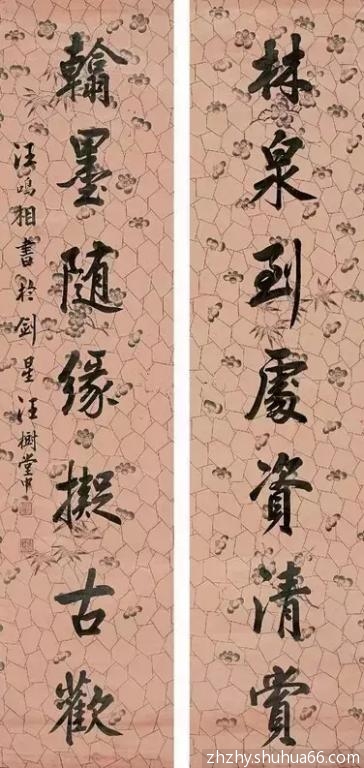 林泉到處資清賞
翰墨随緣擬古歡
汪鳴相書於劍星汪樹堂中
zhzhy.shuhua66.com